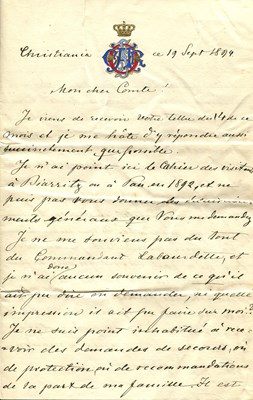 Christiania ce 19 Sept 1894
Mon cher Comte!
Je viens de recevoir Votre lettre du 15 de ce
mois et je me hâte d'y répondre aussi
succinctement que possible.
Je n'ai point ici le Cahier des visites
à Biarritz ou à Pau en 1892, et ne
puis pas vous donner les
ments généraux que Vous me demandez
Je ne me souviens pas du tout
du Commandant Labourdette, et
je n'ai donc aucun souvenir de ce qu'il
ait pu dire ou demander, ni quelle
impression il ait pu faire sur moi.
Je ne suis point inhabitué à rece-
voir des demandes de secours, ou
de protection, ou de recommandations
de la part de ma famille. Il est